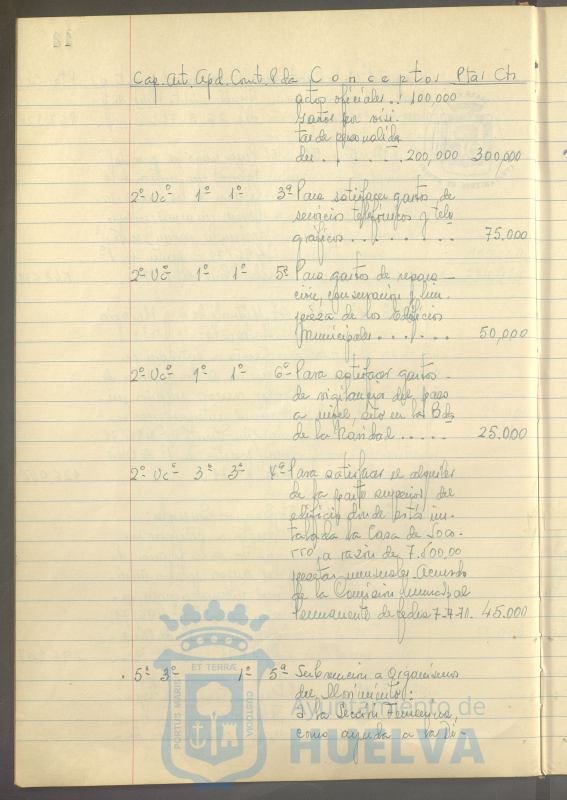 Cap. Art. Apd. Cont. Pda Conceptos Ptas Cts
actos oficiales.. 100,000
Gastos por visi-
tas de personalida
des . . . . . . 200,000 300,000
2º Uc.º 1º 1º 3ª Para satisfacer gastos de
servicio telefónicos y tele
gráficos . . . . . . . . 75.000
2º Uc.º 1º 1º 5ª Para gastos de repara-
ción, conservación y lim-
pieza de los Edificios
Municipales . . . . . . 50,000
2º Uc.º 1º 1º 6ª Para satisfacer gastos
de vigilancia del paso
a nivel, sito en la Bda
de la Navidad . . . . . 25.000
2º Uc.º 3º 3º 4ª Para satisfacer el alquiler
de la parte superior del
edificio donde está ins-
talada la Casa de Soco-
rro, a razón de 7.500,00
pesetas mensuales. Acuerdo
de la Comisión Municipal
Permanente de fecha 7-7-70. 45.000
5º 3º 1º 5ª Subvención a Organismos
del Movimiento:
A la Sección Femenina,
como ayuda a la Di-
PORTUS MARIS
ET TERRÆ
CUSTODIA
Ayuntamiento de
HUELVA